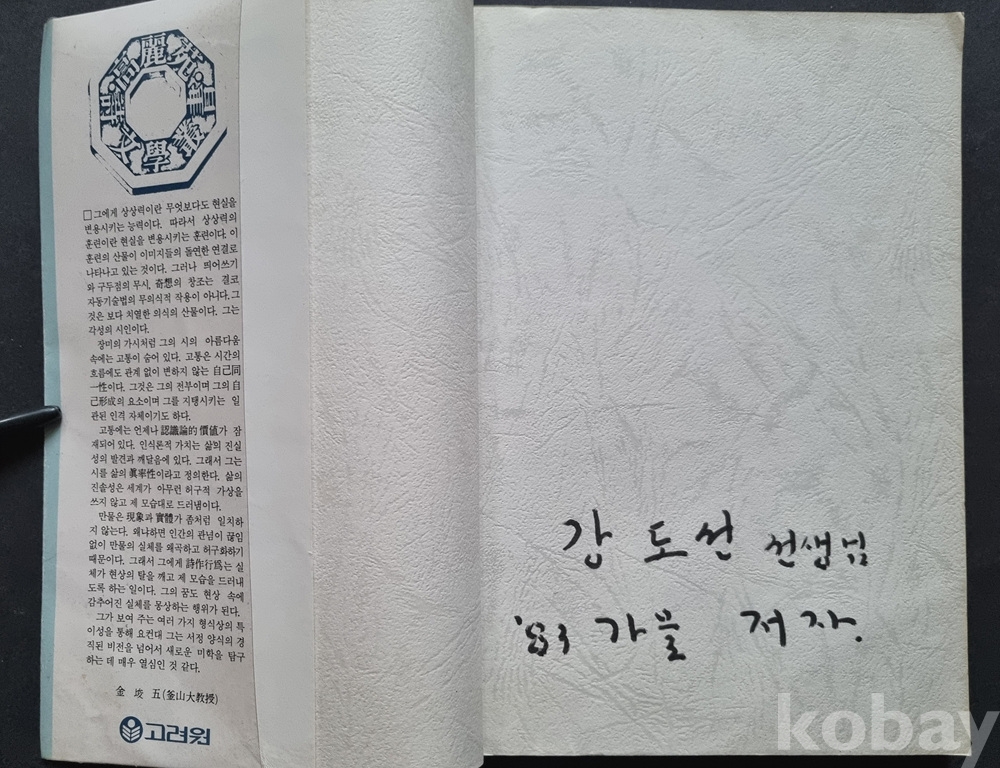 高麗苑
文學叢書
□그에게 상상력이란 무엇보다도 현실을
변용시키는 능력이다. 따라서 상상력의
훈련이란 현실을 변용시키는 훈련이다. 이
훈련의 산물이 이미지들의 돌연한 연결로
나타나고 있는 것이다. 그러나 띄어쓰기
와 구두점의 무시, 奇想의 창조는 결코
자동기술법의 무의식적 작용이 아니다. 그
것은 보다 치열한 의식의 산물이다. 그는
각성의 시인이다.
장미의 가시처럼 그의 시의 아름다움
속에는 고통이 숨어 있다. 고통은 시간의
흐름에도 관계 없이 변하지 않는 自己同
一性이다. 그것은 그의 전부이며 그의 自
己形成의 요소이며 그를 지탱시키는 일
관된 인격 자체이기도 하다.
고통에는 언제나 認識論的 價値가 잠
재되어 있다. 인식론적 가치는 삶의 진실
성의 발견과 깨달음에 있다. 그래서 그는
시를 삶의 眞率性이라고 정의한다. 삶의
진솔성은 세계가 아무런 허구적 가상을
쓰지 않고 제 모습대로 드러냄이다.
만물은 現象과 實體가 좀처럼 일치하
지 않는다. 왜냐하면 인간의 관념이 끊임
없이 만물의 실체를 왜곡하고 허구화하기
때문이다. 그래서 그에게 詩作行爲는 실
체가 현상의 탈을 깨고 제 모습을 드러내
도록 하는 일이다. 그의 꿈도 현상 속에
감추어진 실체를 몽상하는 행위가 된다.
그가 보여 주는 여러 가지 형식상의 특
이성을 통해 요컨대 그는 서정 양식의 경
직된 비전을 넘어서 새로운 미학을 탐구
하는 데 매우 열심인 것 같다.
金 埈 五(釜山大敎授)
고려원
강 도선 선생님
'83 가을 저자.
kobay